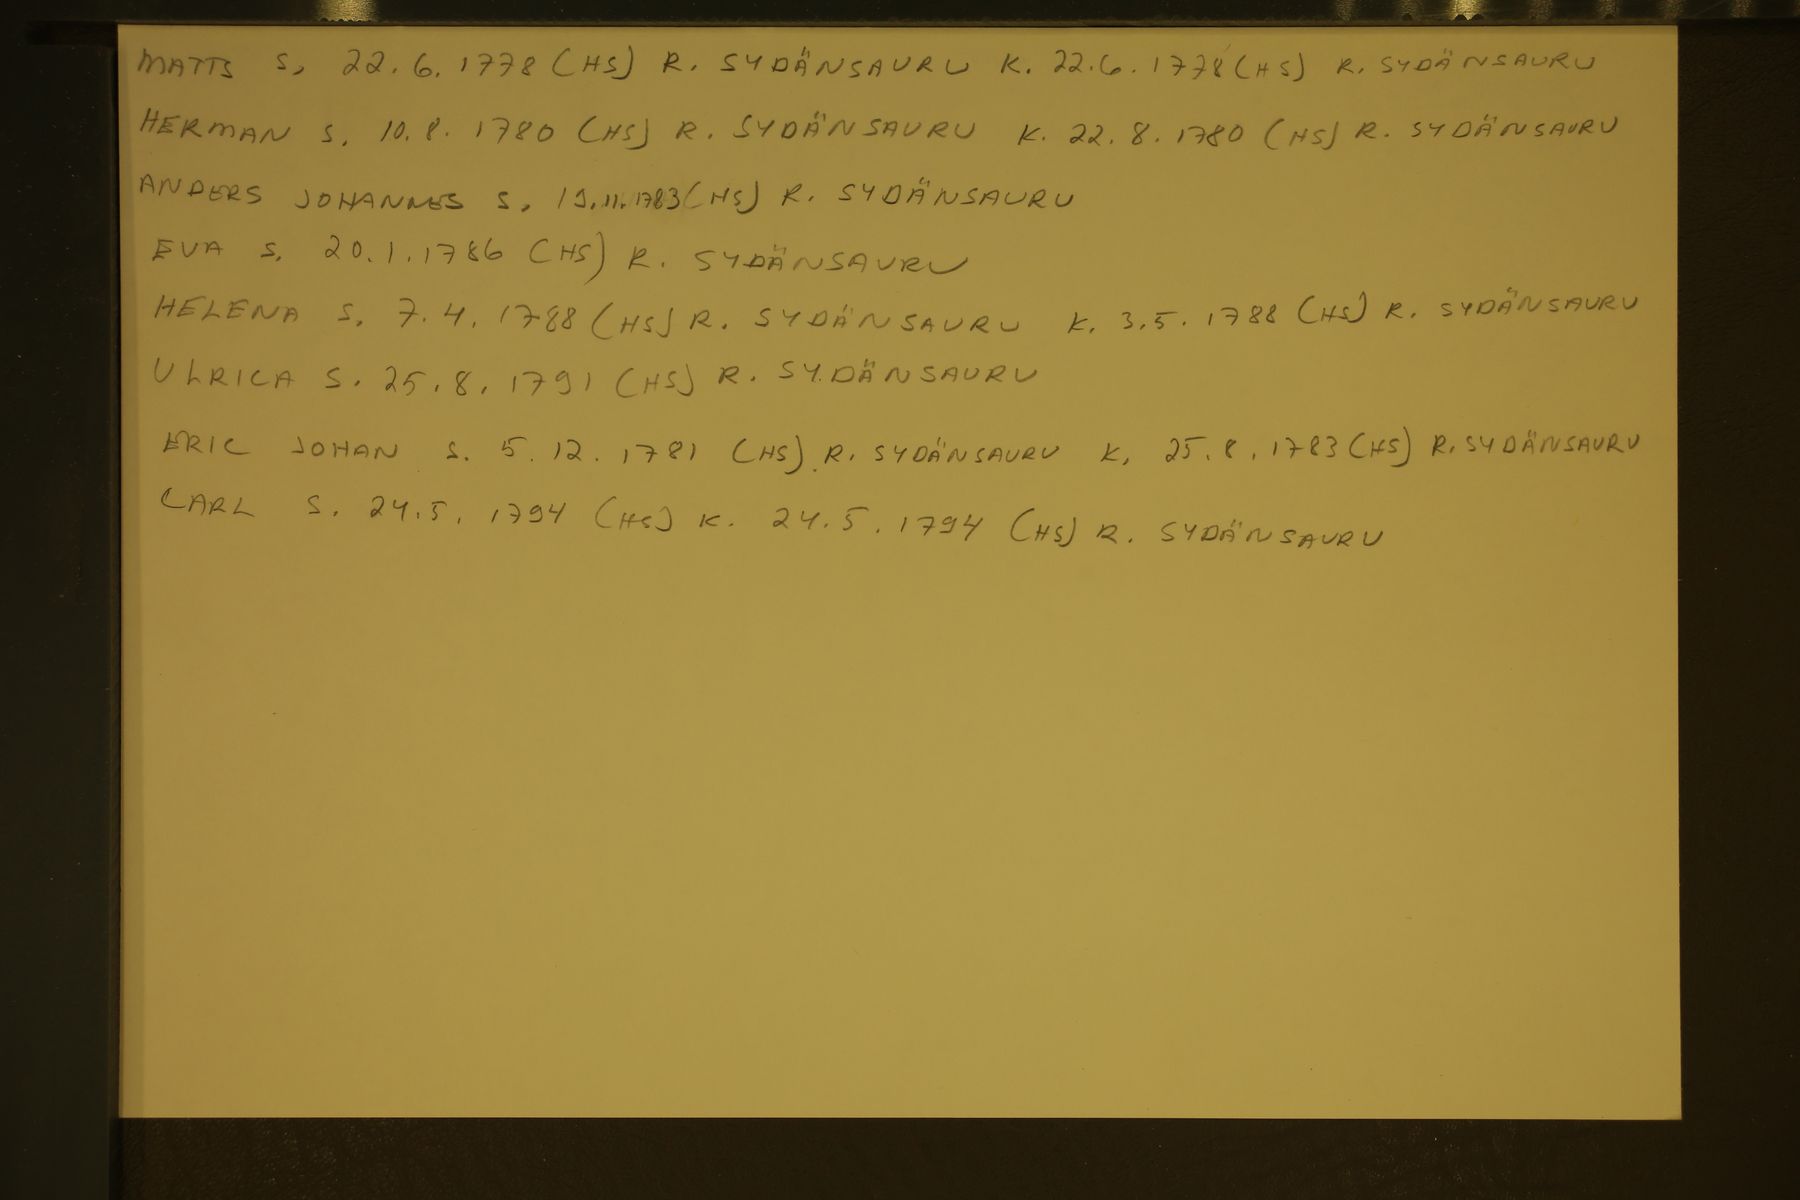 MATTS S, 22.6.1778 (HS) R. SYDÄNSAURU K. 22.6.1778 (HS) R. SYDÄNSAURU
HERMAN S, 10.8.1780 (HS) R. SYDÄNSAURU K. 22.8.1780 (HS) R. SYDÄNSAURU
ANDERS JOHANNES S, 19.11.1783 (HS) R. SYDÄNSAURU
EVA S. 20.1.1786 (HS) R. SYDÄNSAURU
HELENA S, 7.4.1788 (HS) R. SYDÄNSAURU K. 3.5.1788 (HS) R. SYDÄNSAURU
ULRICA S. 25.8.1791 (HS) R. SYDÄNSAURU
ERIC JOHAN S. 5.12.1781 (HS) R. SYDÄNSAURU K, 25.8.1783 (HS) R. SYDÄNSAURU
CARL S. 24.5.1794 (HS) K. 24.5.1794 (HS) R. SYDÄNSAURU